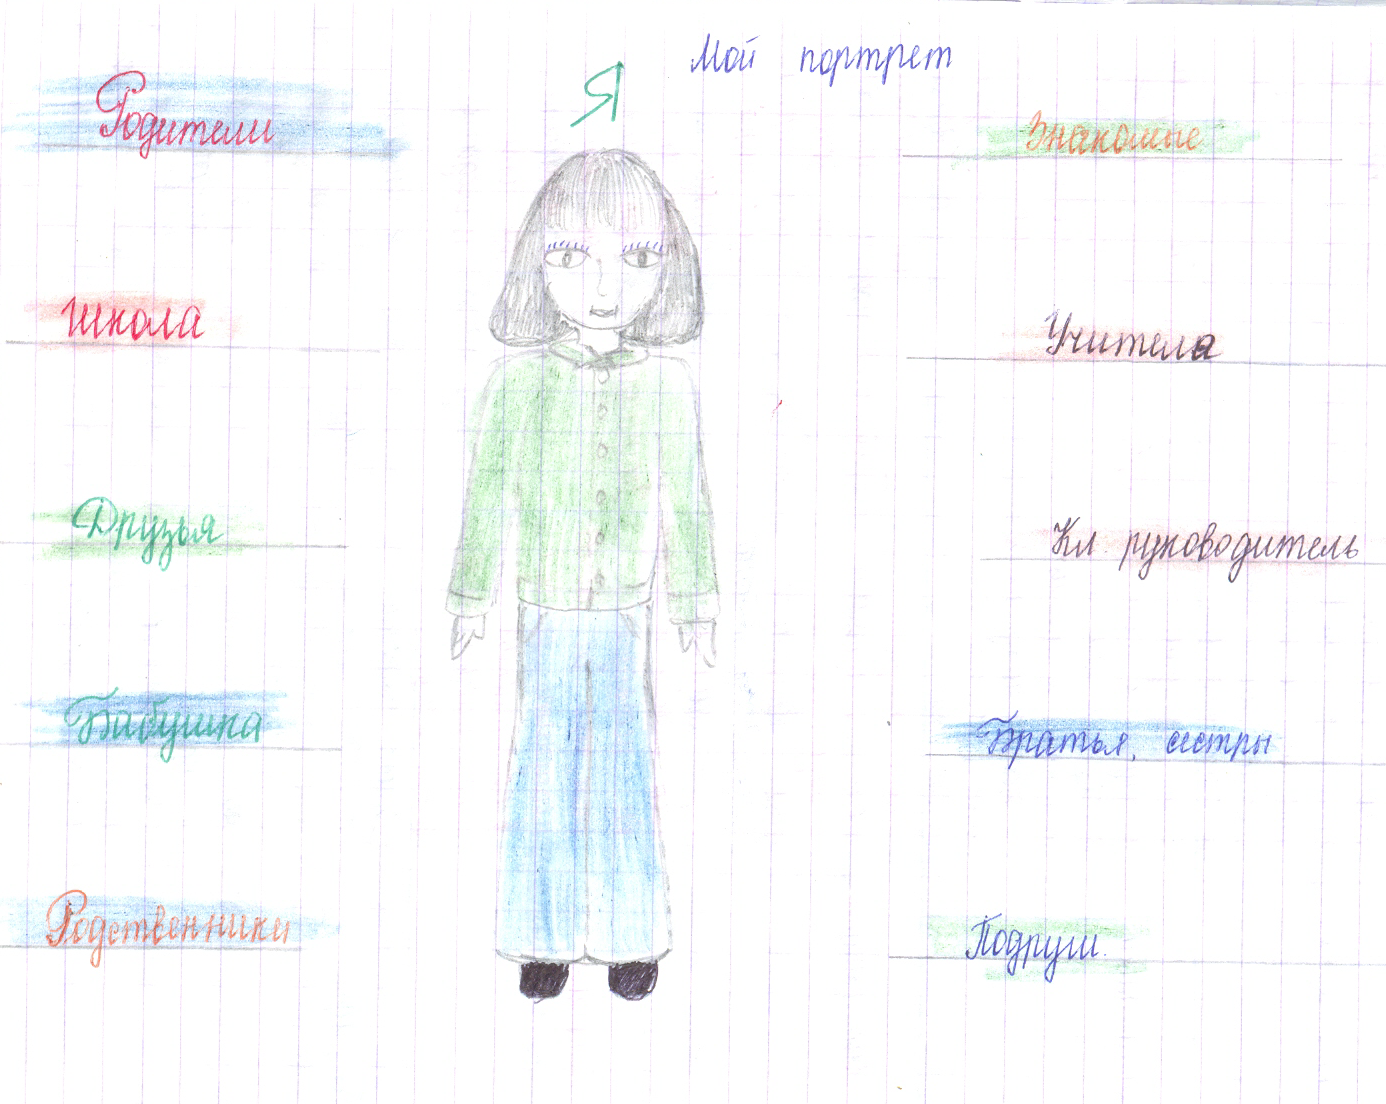 Мой портрет
Я
Родители
Школа
Друзья
Бабушка
Родственники
Знакомые
Учителя
Кл. руководитель
Братья, сестры
Подруги.